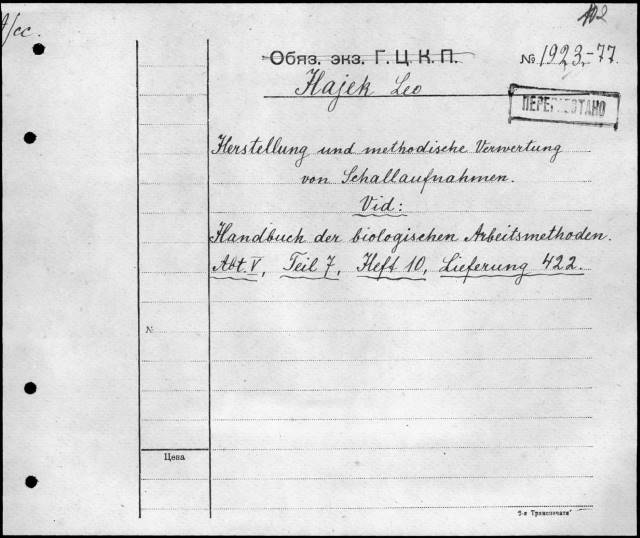 A/cc.
Обяз. экз. Г. Ц. К. П.
№ 1923-77.
Hajek Leo
ПЕРЕИНВЕСТАНО
Herstellung und methodische Verwertung
von Schallaufnahmen.
Vid:
Handbuch der biologischen Arbeitsmethoden.
Abt. V, Teil 7, Heft 10, Lieferung 422.
№
Цена